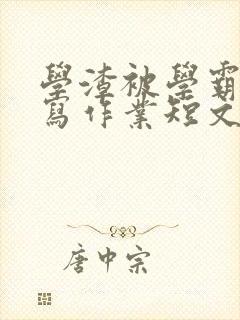 學渣被學霸
寫作業短文
唐中宗